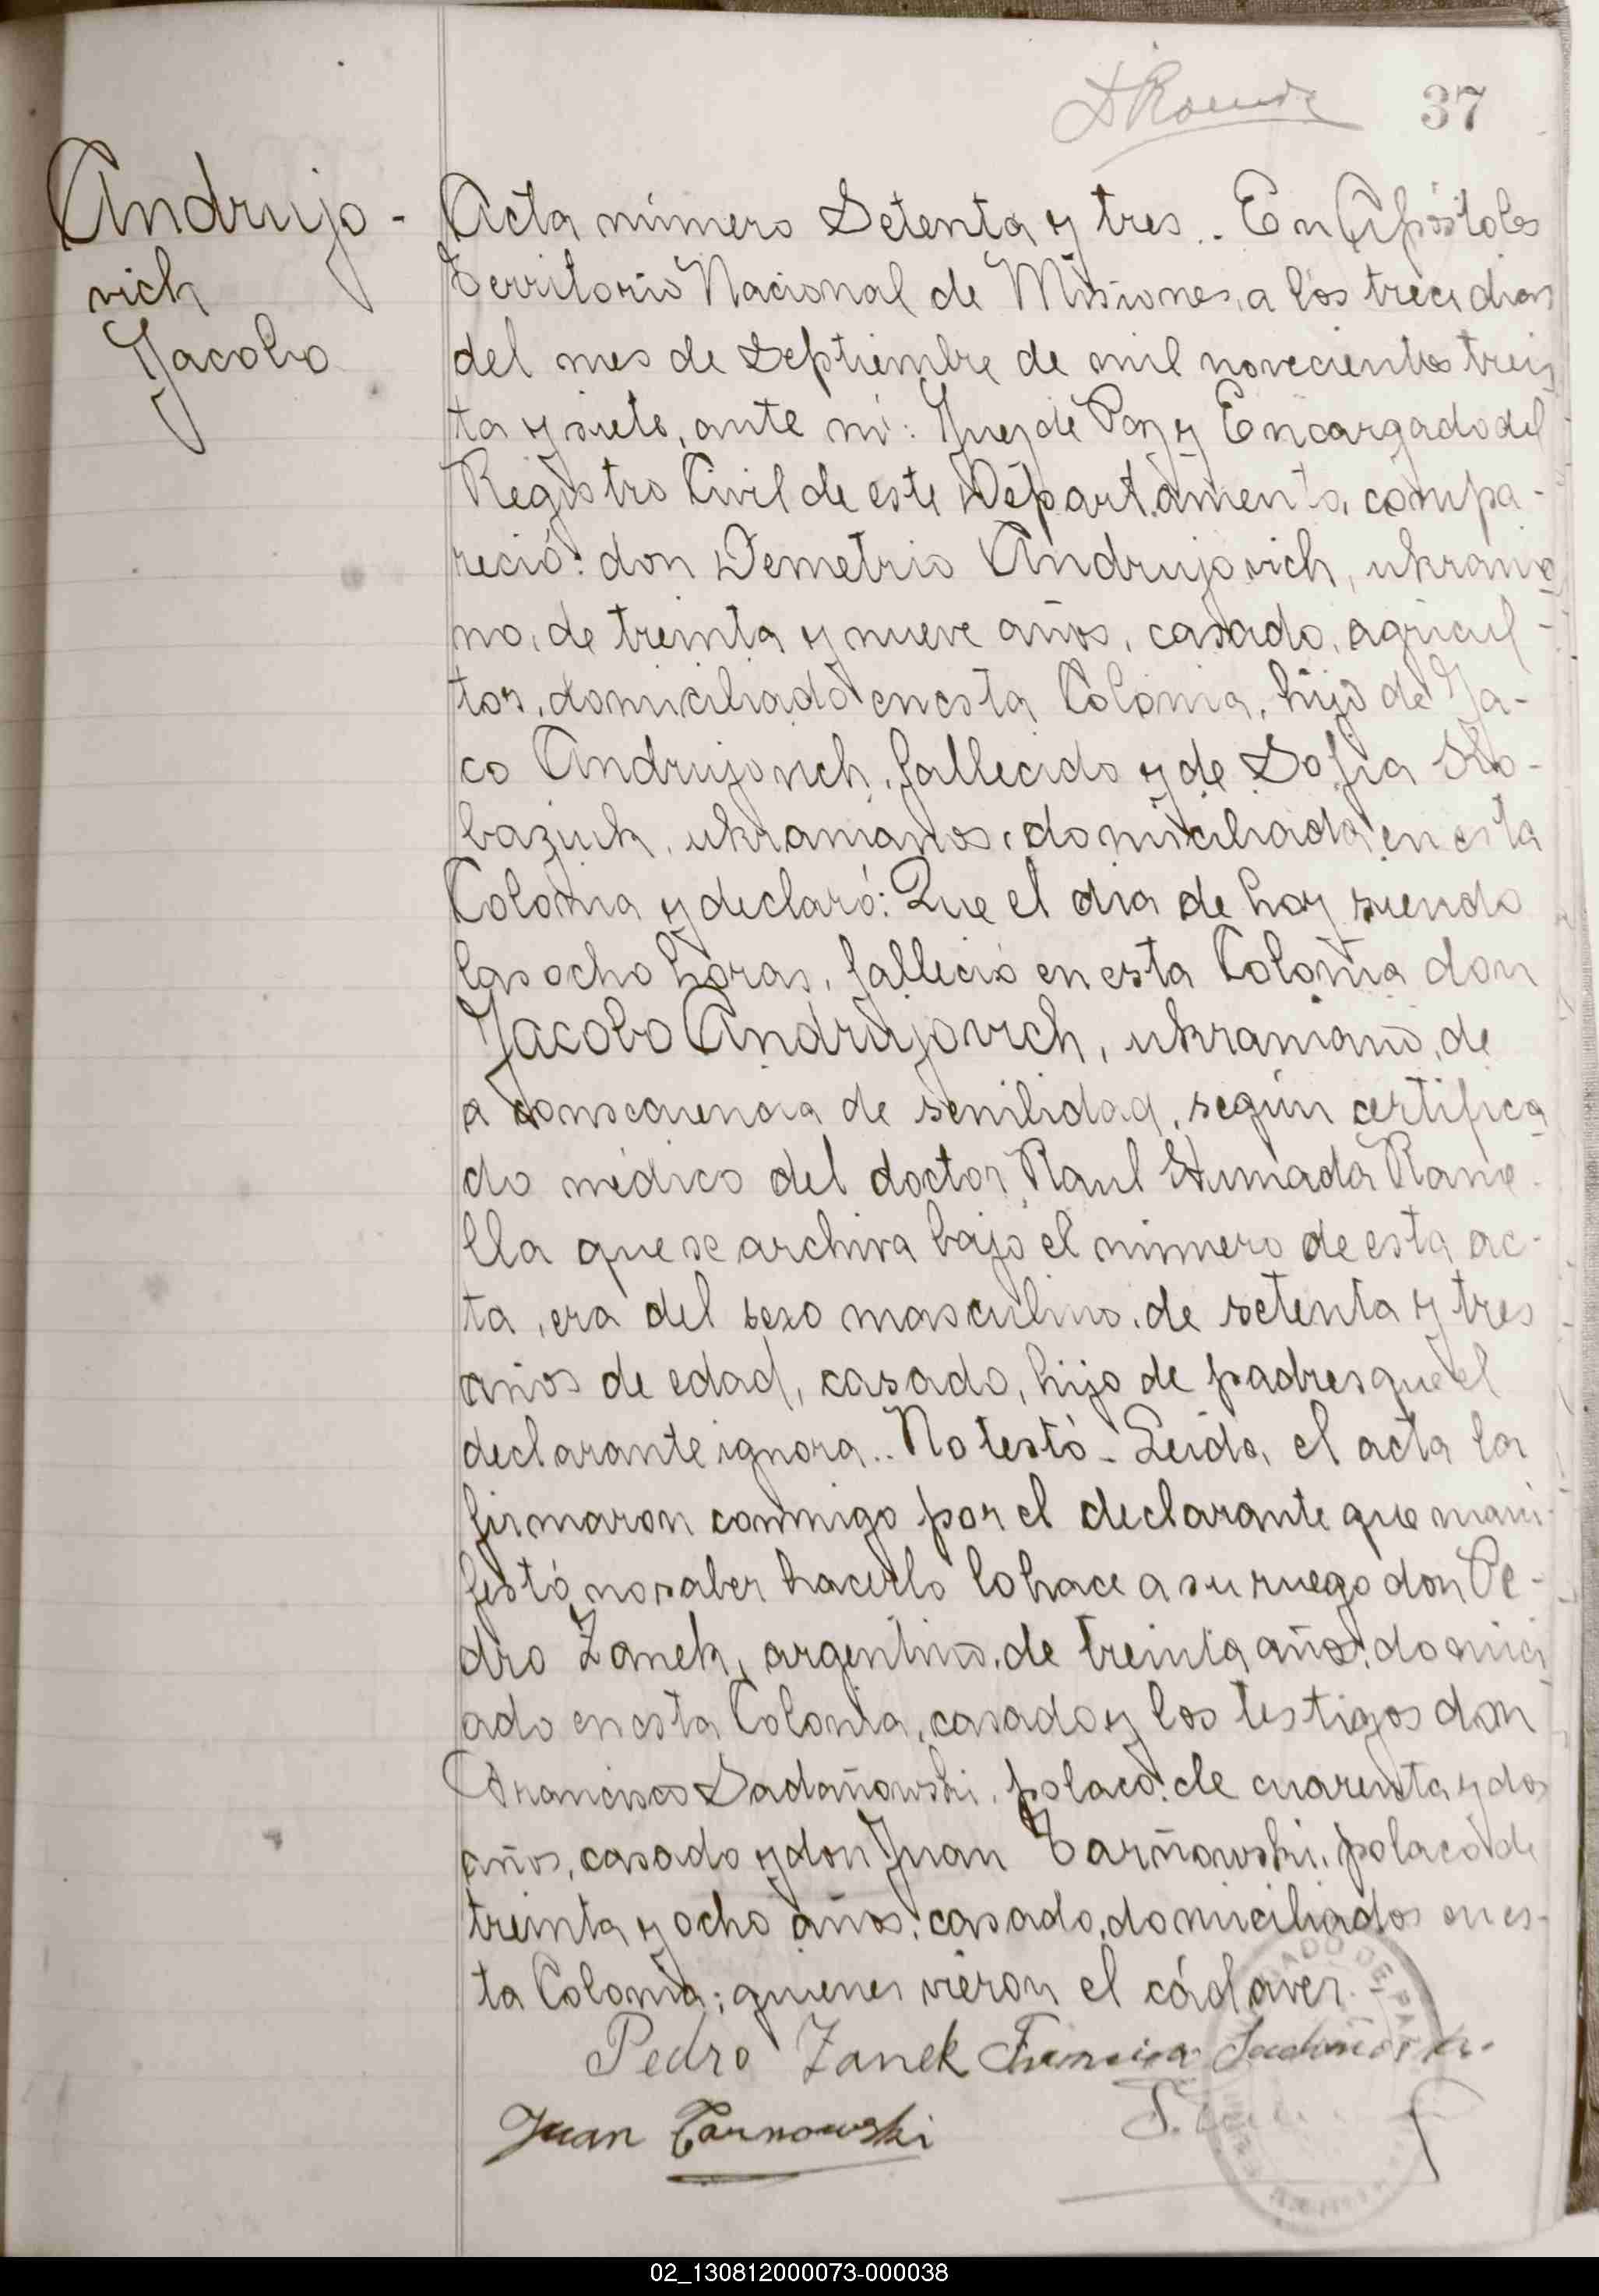 37
Andrujo-
vich
Jacobo
Acta número Setenta y tres.. En Apóstoles
Territorio Nacional de Misiones, a los trece dias
del mes de Septiembre de mil novecientos trein
ta y siete, ante mi: Juez de Paz y Encargado del
Registro Civil de este Departamento, compa-
reció: don Demetrio Andrujovich, ukrania
no, de treinta y nueve años, casado, agricul-
tor, domiciliado en esta Colonia, hijo de Ja-
co Andrujovich, fallecido y de Sofia
baziuk, ukranianos, domiciliada en esta
Colonia y declaró: Que el dia de hoy siendo
las ocho horas, falleció en esta Colonia don
Jacobo Andrujovich, ukraniano, de
a consecuencia de senilidad, según certifica
do médico del doctor Raul Humada Rame-
lla que se archiva bajo el número de esta ac-
ta, era del sexo masculino, de setenta y tres
años de edad, casado, hijo de padres que el
declarante ignora.. No testó - Leida, el acta la
firmaron conmigo por el declarante que mani-
festó no saber hacerlo lo hace a su ruego don Pe-
dro Zanek, argentino, de treinta años, domici
ado en esta Colonia, casado y los testigos don
Francisco Sadañowski, polaco, de cuarenta y dos
años, casado y don Juan Tarñowski, polaco de
treinta y ocho años, casado, domiciliados en es-
ta Colonia; quienes vieron el cádaver.
Pedro Zanek
Juan Tarnowski
02_130812000073-000038